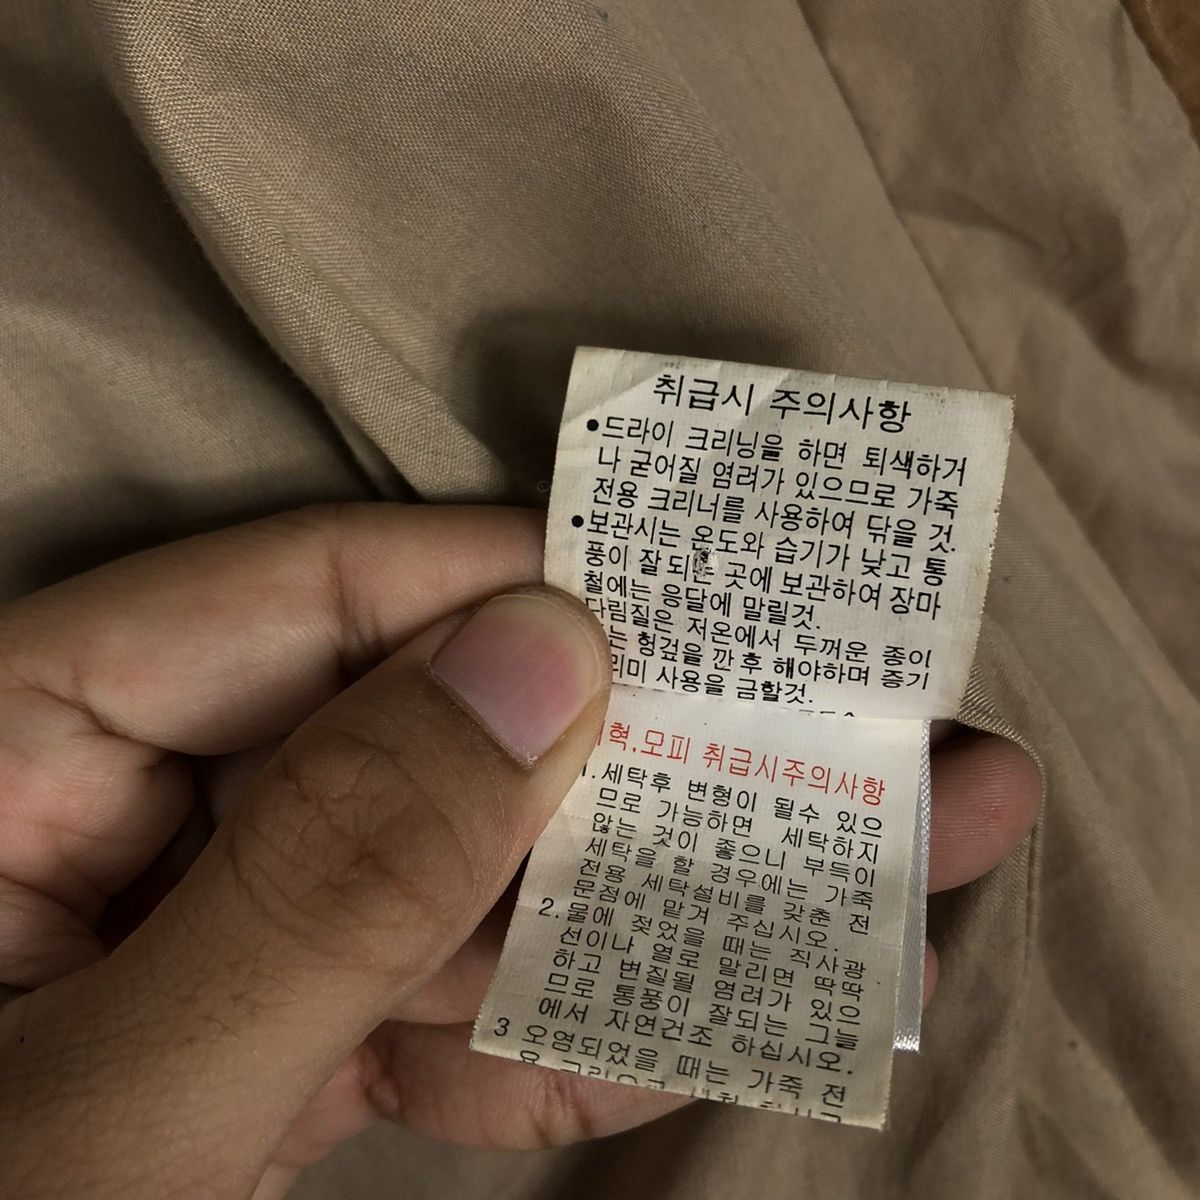 취급시 주의사항
●드라이 크리닝을 하면 퇴색하거
나 굳어질 염려가 있으므로 가죽
전용 크리너를 사용하여 닦을 것.
●보관시는 온도와 습기가 낮고 통
풍이 잘 되는 곳에 보관하여 장마
철에는 응달에 말릴것.
다림질은 저온에서 두꺼운 종이
는 헝겊을 깐 후 해야하며 증기
리미 사용을 금할것.
혁.모피 취급시주의사항
1.세탁후 변형이 될수 있으
므로 가능하면 세탁하지
않는 것이 좋으니 부득이
세탁을 할 경우에는 가죽
전용 세탁설비를 갖춘 전
문점에 맡겨 주십시오.
2.물에 젖었을 때는 직사광
선이나 열로 말리면 딱딱
하고 변질될 염려가 있으
므로 통풍이 잘되는 그늘
에서 자연건조 하십시오.
3 오염되었을 때는 가죽 전